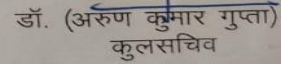 डॉ. (अरुण कुमार गुप्ता)
कुलसचिव